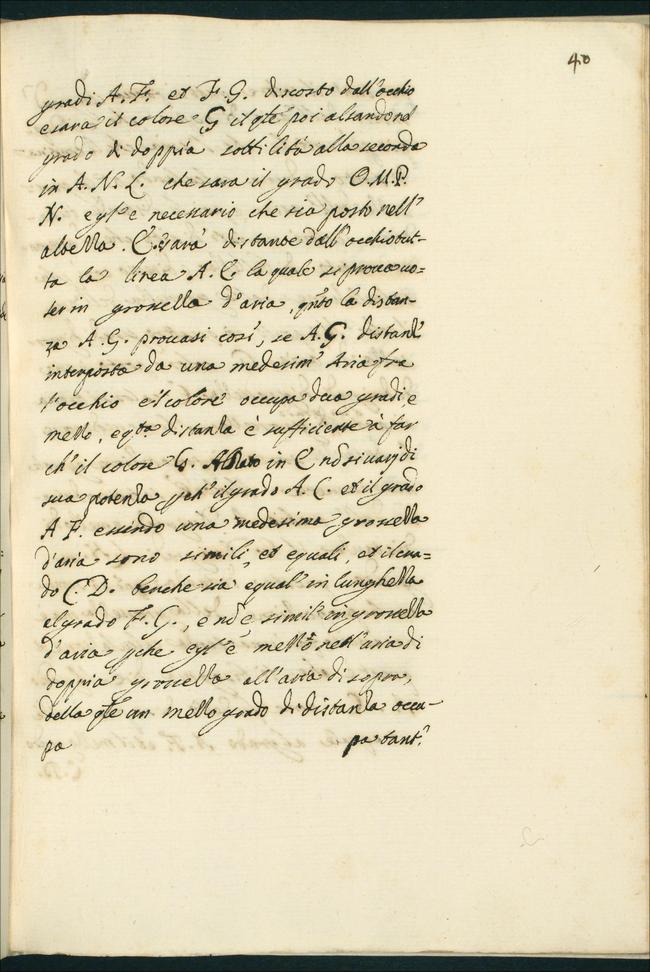 40
gradi A. F. et F. G. discosto dall'occhio
e sara il colore G il qle poi alsandone
grado di doppia sottilità alla seconda
in A. N. L. che sara il grado O. M. P.
N. egl'è necessario che sia posto nell'
altella. E. sarà distante dall'occhio tut-
ta la linea A. E. la quale si prova es=
ser in grossella d'aria, qnto la distan-
za A. G. provasi così, se A. G. distanl'
interposta da una medesim' Aria fra
l'occhio e'l colore occupa dua gradi e
mello, e qta distanla è sufficiente à far
ch'il colore G. Alzato in E nō si varj di
sua potenla pch' il grado A. C. et il grado
A F. essindo una medesima grossella
d'aria sono simili, et equali, et il gra=
do C. D. benche sia equal' in lunghella
al grado F. G., e nō è simil' in grossella
d'aria pche egl'è mellō nell'aria di
doppia grossella all'aria di sopra,
della qle un mello grado di distanla occu-
pa pa tant'